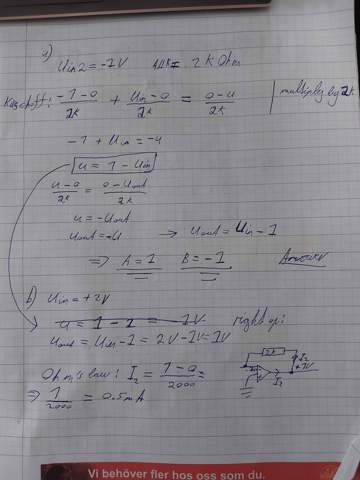 a)
Uin2 = -1V all R = 2 k Ohm
Kirchoff: (-1-0)/2k + (Uin-0)/2k = (0-u)/2k | multiply by 2k
-1 + Uin = -u
u = 1 - Uin
(u-0)/2k = (0-Uout)/2k
u = -Uout
Uout = -u → Uout = Uin - 1
=> A = 1 B = -1 Answer
b) Uin = +2V
u = 1 - 2 = 1V right op:
Uout = Uin - 1 = 2V - 1V = 1V
Ohm's law: I2 = (1-0)/2000 =
=> 1/2000 = 0.5mA
2k I2
+1V
Vi behöver fler hos oss som du.